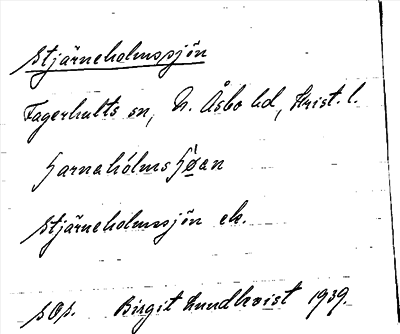 Stjärneholmssjön
Fagerhults sn, N. Åsbo hd, Krist. l.
Stjärneholmssjön ek.
Birgit Lundkvist 1939.